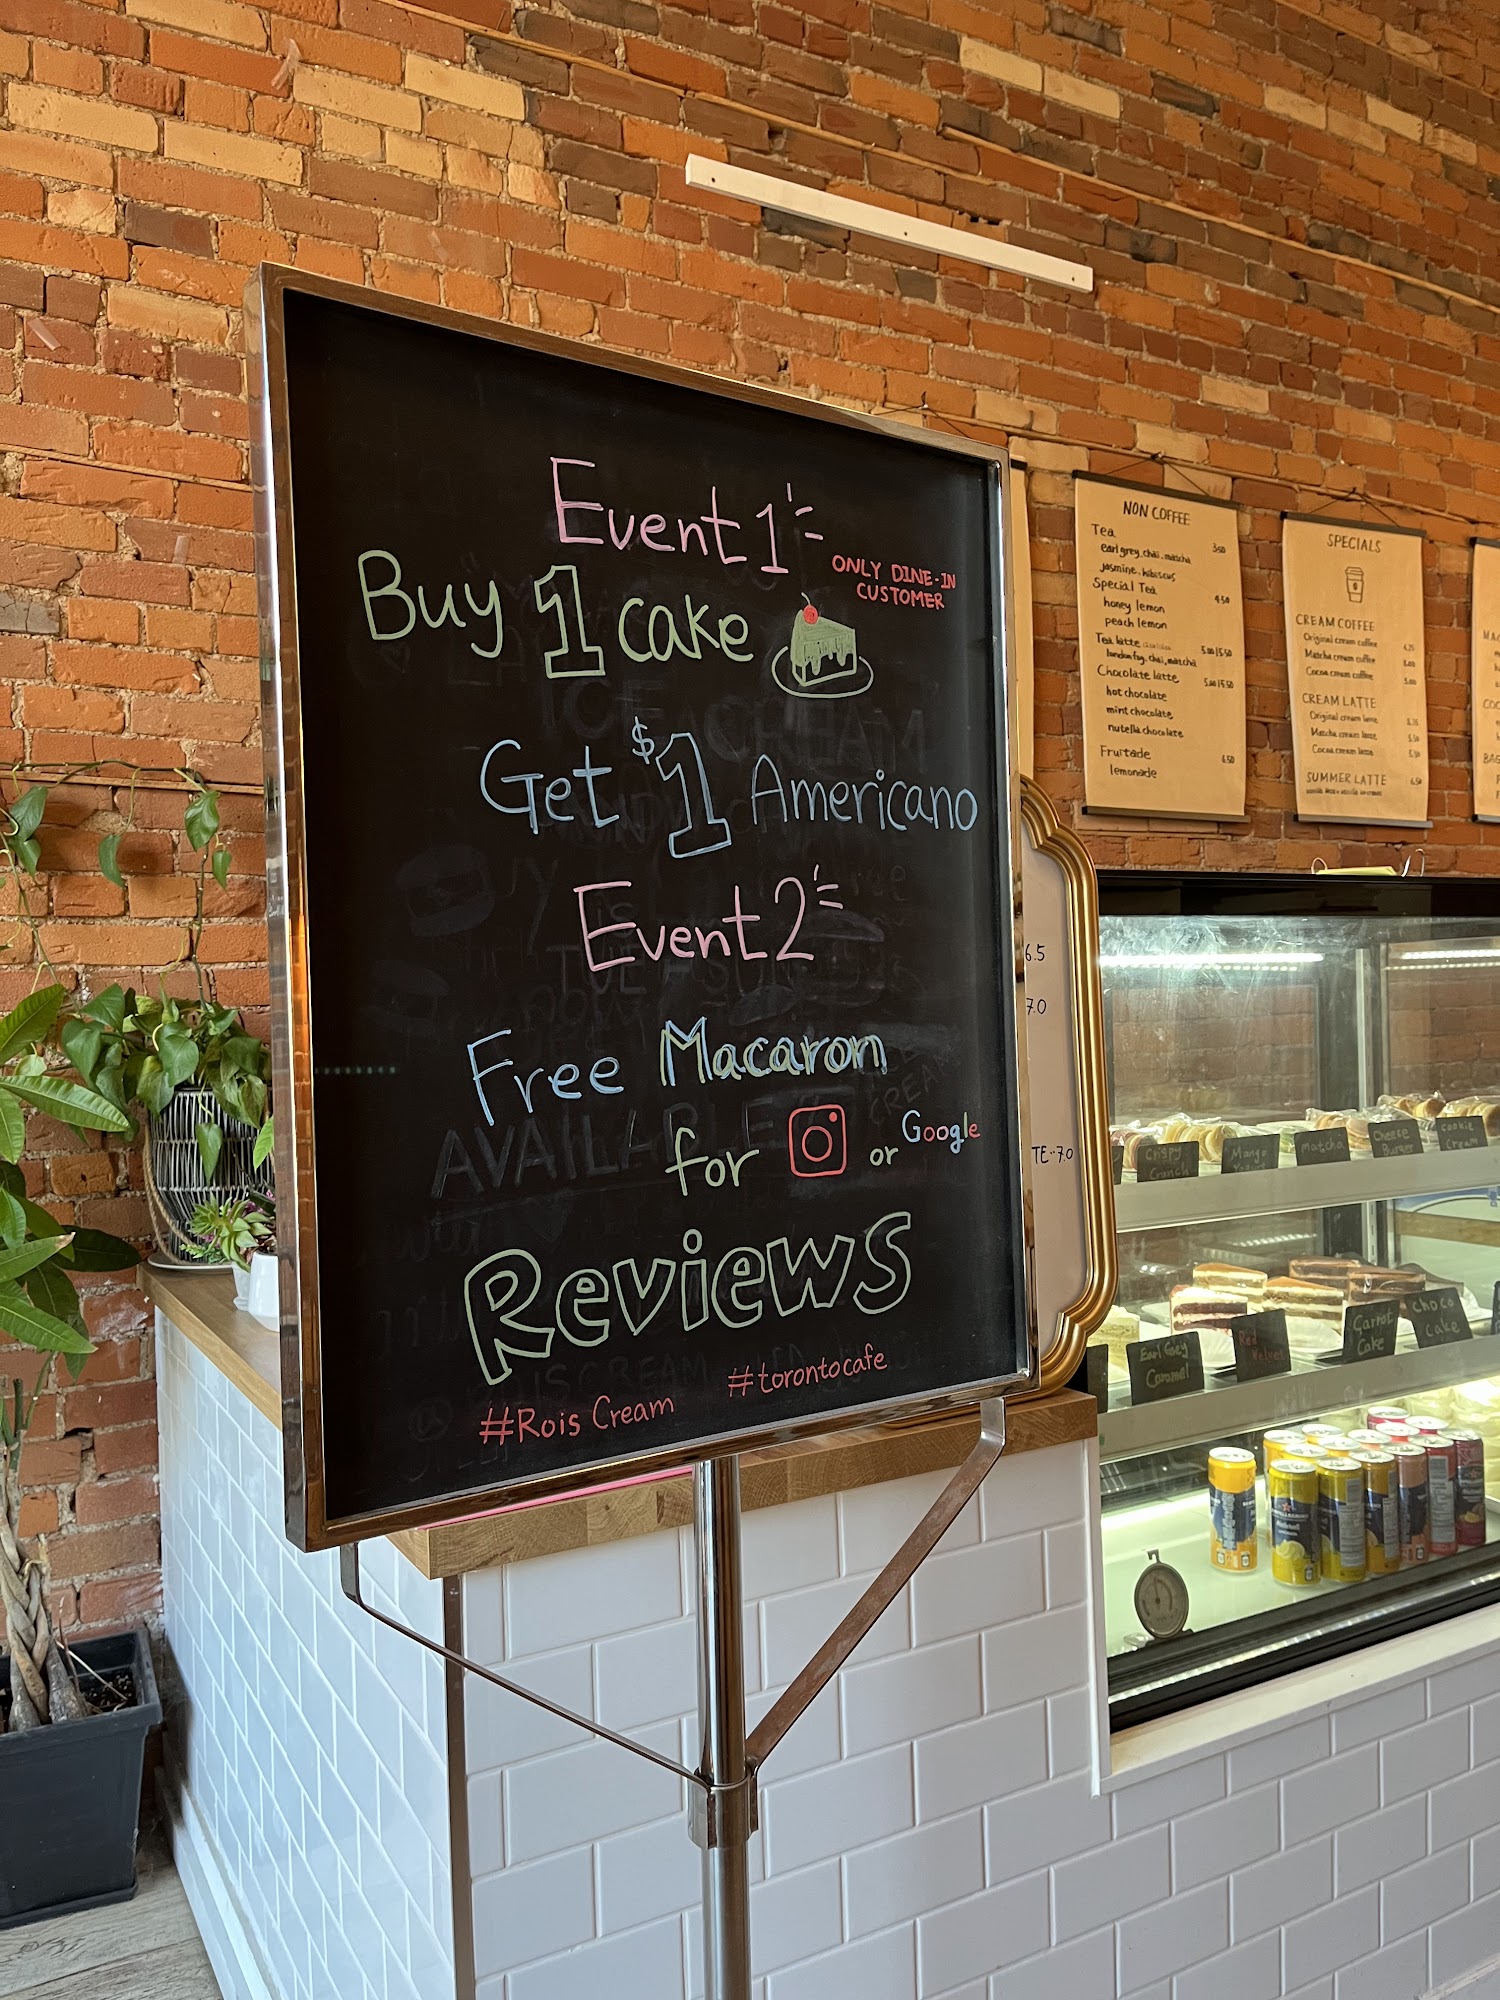 Event 1
ONLY DINE-IN
CUSTOMER
Buy 1 cake
Get $1 Americano
Event 2
Free Macaron
for or Google
Reviews
#Rois Cream #torontocafe
NON COFFEE
Tea 3.50
earl grey, chai, matcha
jasmine, hibiscus
Special Tea 4.50
honey lemon
peach lemon
Tea latte 5.00 | 5.50
london fog, chai, matcha
Chocolate latte 5.00 | 5.50
hot chocolate
mint chocolate
nutella chocolate
Fruitade 6.50
lemonade
SPECIALS
CREAM COFFEE
Original cream coffee
Matcha cream coffee
Cocoa cream coffee
CREAM LATTE
Original cream latte
Matcha cream latte
Cocoa cream latte
SUMMER LATTE
6.5
7.0
TE--7.0
Crispy
Crunch
Mango
Matcha
Cheese
Burger
Cookie
Cream
Earl Grey
Caramel
Red
Velvet
Carrot
Cake
Choco
Cake